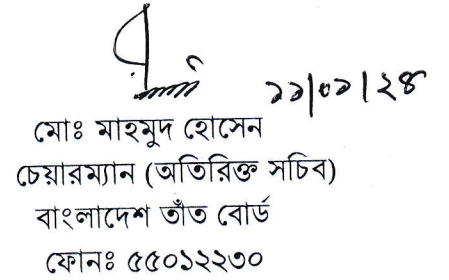 ১১/০১/২৪
মোঃ মাহমুদ হোসেন
চেয়ারম্যান (অতিরিক্ত সচিব)
বাংলাদেশ তাঁত বোর্ড
ফোনঃ ৫৫০১২২৩০